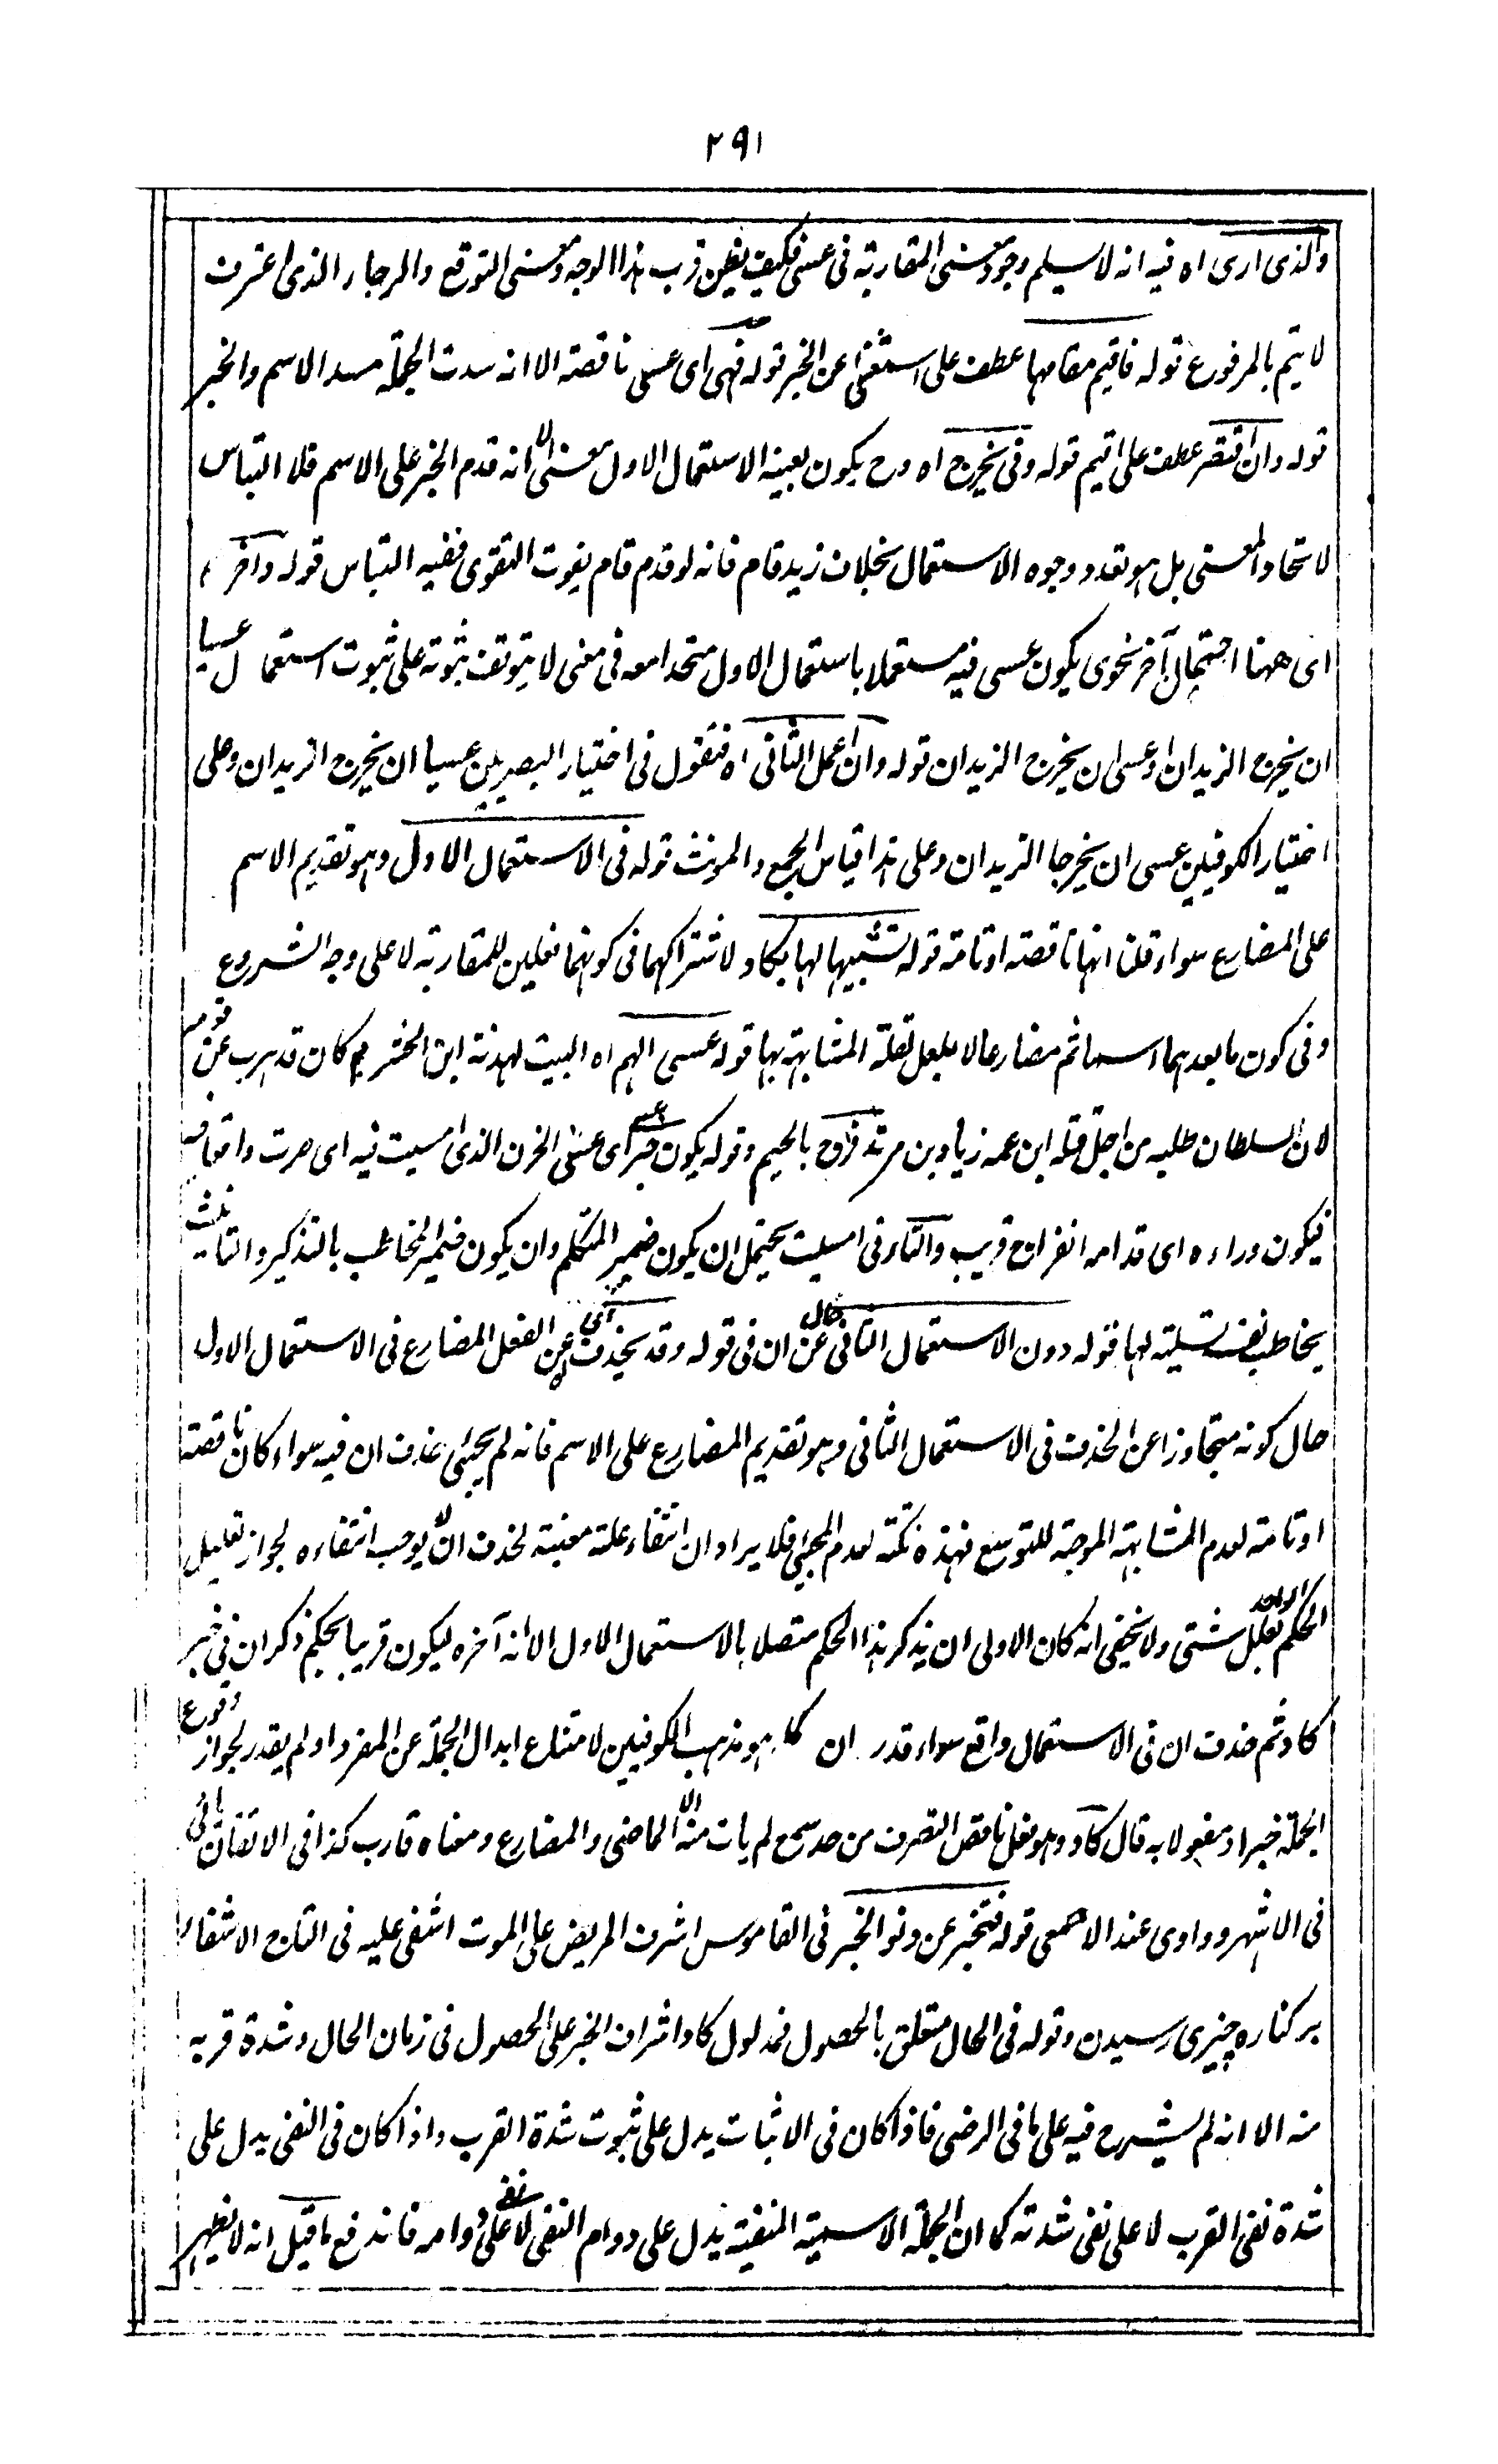 ٢٩١
والذى ارى اه فيه انه لا يسلم وجود معنى المقاربة فى عسى فكيف يظن قرب هذا الوجه ومعنى التوقع والرجاء الذى اعترف
لا يتم بالمرفوع قوله فاقيم مقامها عطف على استغنى عن الخبر قوله فهى اى عسى ناقصة الا انه سدت الجملة مسد الاسم والخبر
قوله وان اقتصر عطف على اقيم قوله وفى يخرج اه وح يكون بعينه الاستعمال الاول معنى الا انه قدم الخبر على الاسم فلا التباس
لاتحاد المعنى بل هو تعدد وجوه الاستعمال بخلاف زيد قام فانه لو قدم قام يفوت التقوى ففيه التباس قوله وآخر
اى ههنا احتمال آخر نحوى يكون عسى فيه مستعملا باستعمال الاول متحدا معه فى معنى لا يتوقف ثبوته على ثبوت استعمال عسيا
ان يخرج الزيدان او عسى ان يخرج الزيدان قوله وان اعمل الثانى اه فتقول فى اختيار البصريين عسيا ان يخرج الزيدان وعلى
اختيار الكوفيين عسى ان يخرجا الزيدان وعلى هذا قياس الجمع والمونث قوله فى الاستعمال الاول وهو تقديم الاسم
على المضارع سواء قلنا انها ناقصة او تامة قوله تشبيها لها بكاد لاشتراكهما فى كونهما فعلين للمقاربة لا على وجه الشروع
وفى كون ما بعدهما اسما ثم مضارعا لا بلعل لقلة المشابهة بها قوله عسى الهم اه البيت لهدبة ابن الخشرم كان قد هرب عن قومه
لان السلطان طلبه من اجل قتله ابن عمه زياد بن مرثد فرج بالجيم وقوله يكون خبر عسى اى عسى الحزن الذى امسيت فيه اى صرت واقعا فيه
فيكون وراءه اى قدامه انفراج قريب والتاء فى امسيت يحتمل ان يكون ضمير المتكلم وان يكون ضمير المخاطب بالتذكير والتانيث
يخاطب نفسه تسلية لها قوله دون الاستعمال الثانى حال عن ان فى قوله وقد يحذف اى عن الفعل المضارع فى الاستعمال الاول
حال كونه متجاوزا عن الحذف فى الاستعمال الثانى وهو تقديم المضارع على الاسم فانه لم يجئ حذف ان فيه سواء كان ناقصة
او تامة لعدم المشابهة الموجبة للتوسع فهذه نكتة لعدم المجئ فلا يراد ان انتفاء علة معينة لحذف ان لا يوجب انتفاءه لجواز تعليل
الحكم الواحد بعلل شتى ولا يخفى انه كان الاولى ان يذكر هذا الحكم متصلا بالاستعمال الاول الا انه آخره ليكون قريبا بحكم ذكر ان فى خبر
كاد ثم حذف ان فى الاستعمال واقع سواء قدر ان كما هو مذهب الكوفيين لامتناع ابدال الجملة عن المفرد او لم يقدر لجواز وقوع
الجملة خبرا ومفعولا به قال كاد وهو فعل ناقص التصرف من حد سمع لم يات منه الا الماضى والمضارع ومعناه قارب كذا فى الاتقان يائى
فى الاشهر وواوى عند الاصمعى قوله فتخبر عن دنو الخبر فى القاموس اشرف المريض على الموت اشفى عليه فى التاج الاشفاء
بر كناره چيزى رسيدن وقوله فى الحال متعلق بالحصول فمدلول كاد اشراف الخبر على الحصول فى زمان الحال وشدة قربه
منه الا انه لم يشرع فيه على ما فى الرضى فاذا كان فى الاثبات يدل على ثبوت شدة القرب واذا كان فى النفى يدل على
شدة نفى القرب لا على نفى شدته كما ان الجملة الاسمية المنفية يدل على دوام النفى لا على نفى دوامه فاندفع ما قيل انه لا يظهر